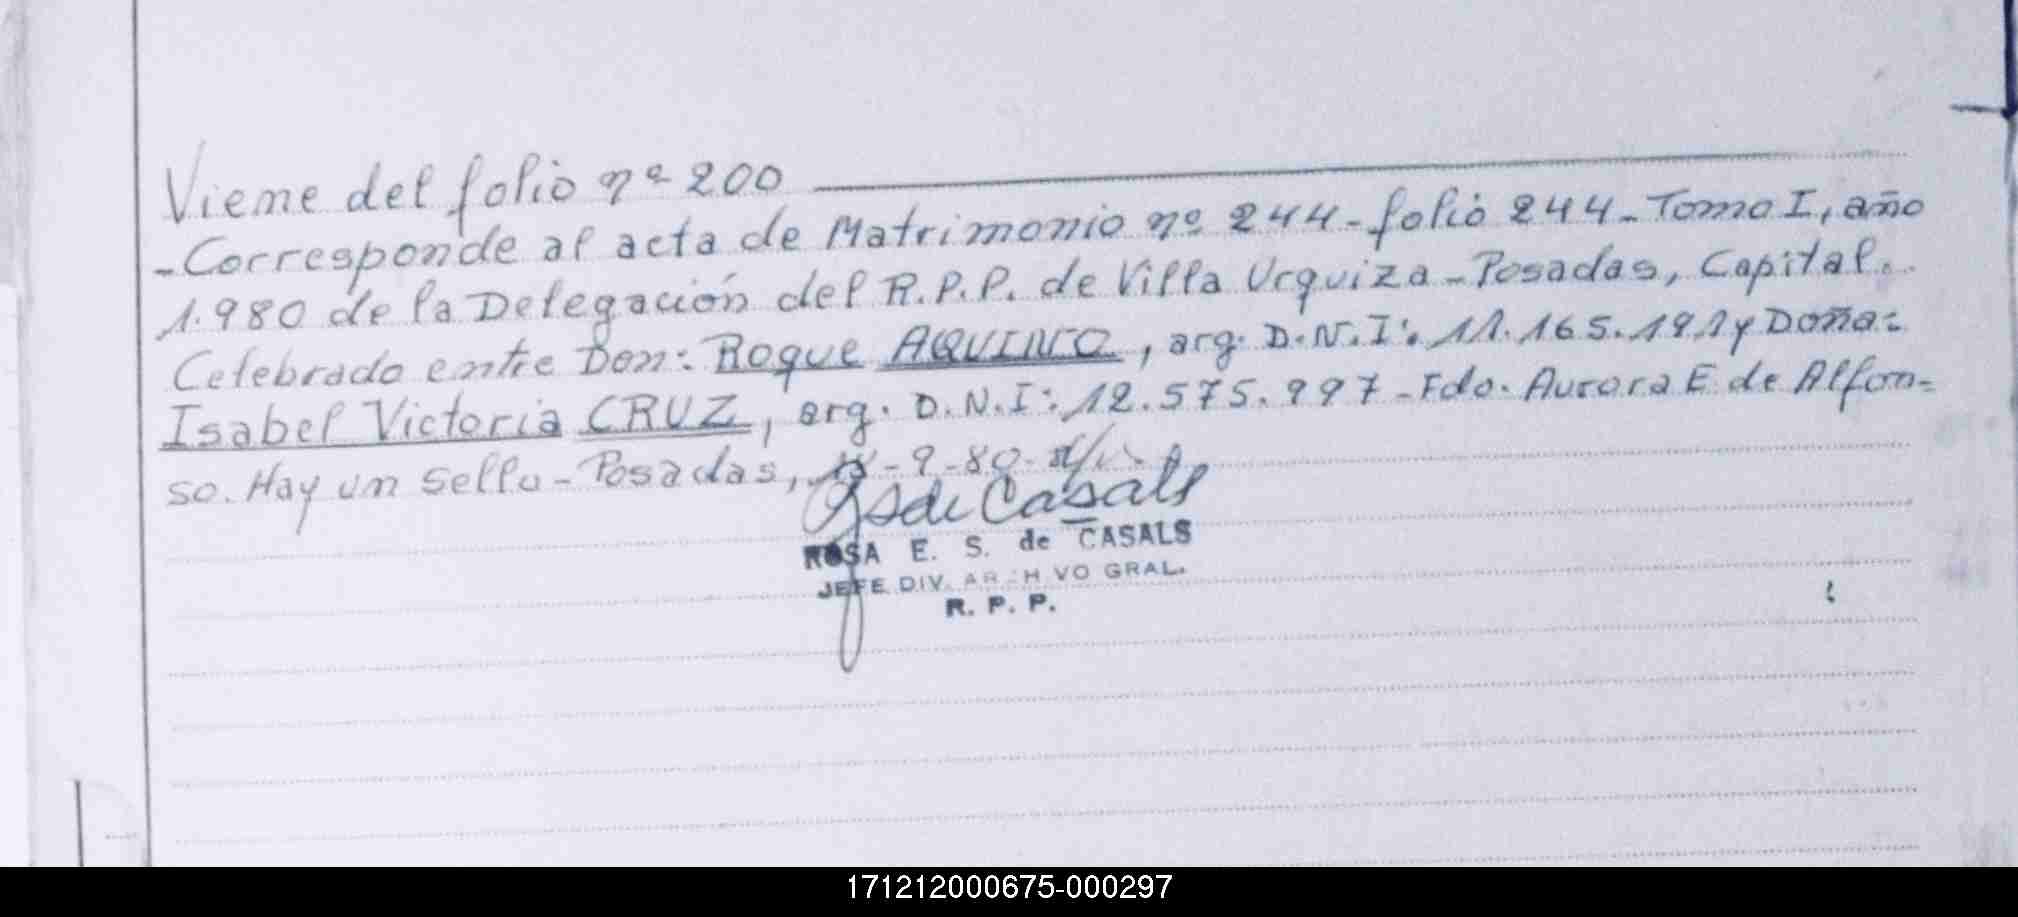 Viene del folio nº 200
- Corresponde al acta de Matrimonio nº 244 - folio 244 - Tomo I, año
1.980 de la Delegación del R.P.P. de Villa Urquiza - Posadas, Capital.
Celebrado entre Don: Roque AQUINO, arg. D.N.I: 11.165.191 y Doña:
Isabel Victoria CRUZ, arg. D.N.I: 12.575.997 - Fdo. Aurora E. de Alfon-
so. Hay un sello - Posadas, -9-80-
de Casals
ROSA E. S. de CASALS
JEFE DIV. ARCHIVO GRAL.
R. P. P.
171212000675-000297